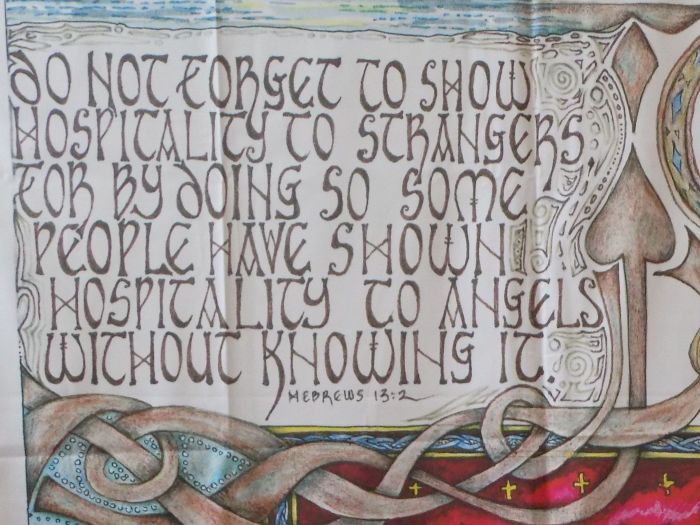 DO NOT FORGET TO SHOW
HOSPITALITY TO STRANGERS
FOR BY DOING SO SOME
PEOPLE HAVE SHOWN
HOSPITALITY TO ANGELS
WITHOUT KNOWING IT.
HEBREWS 13:2